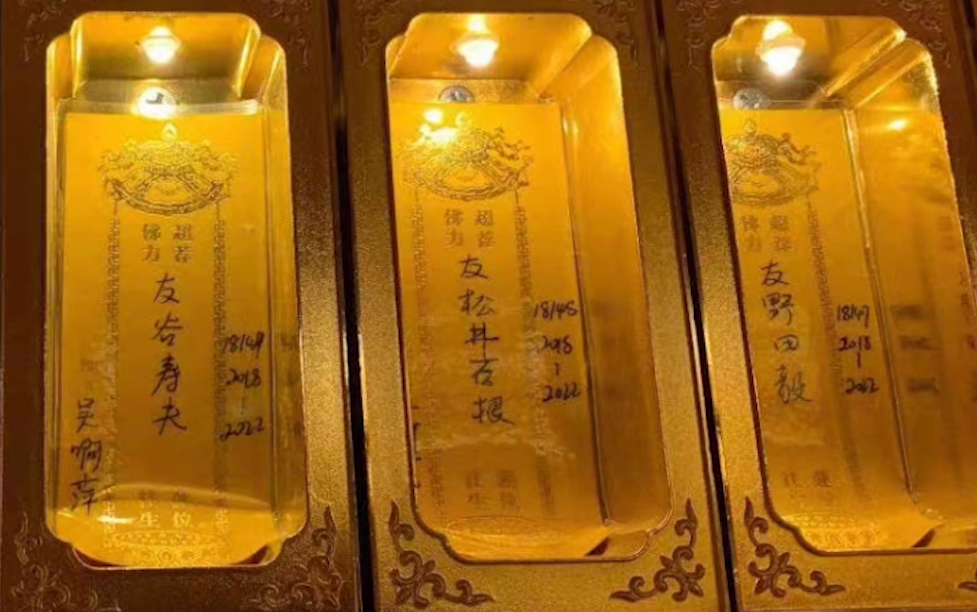 佛力
超荐
友谷寿夫
18149
2018
|
2022
吴啊萍
往生
莲位
佛力
超荐
友松井石根
18148
2018
|
2022
往生
莲位
佛力
超荐
友野田毅
18147
2018
|
2022
往生
莲位